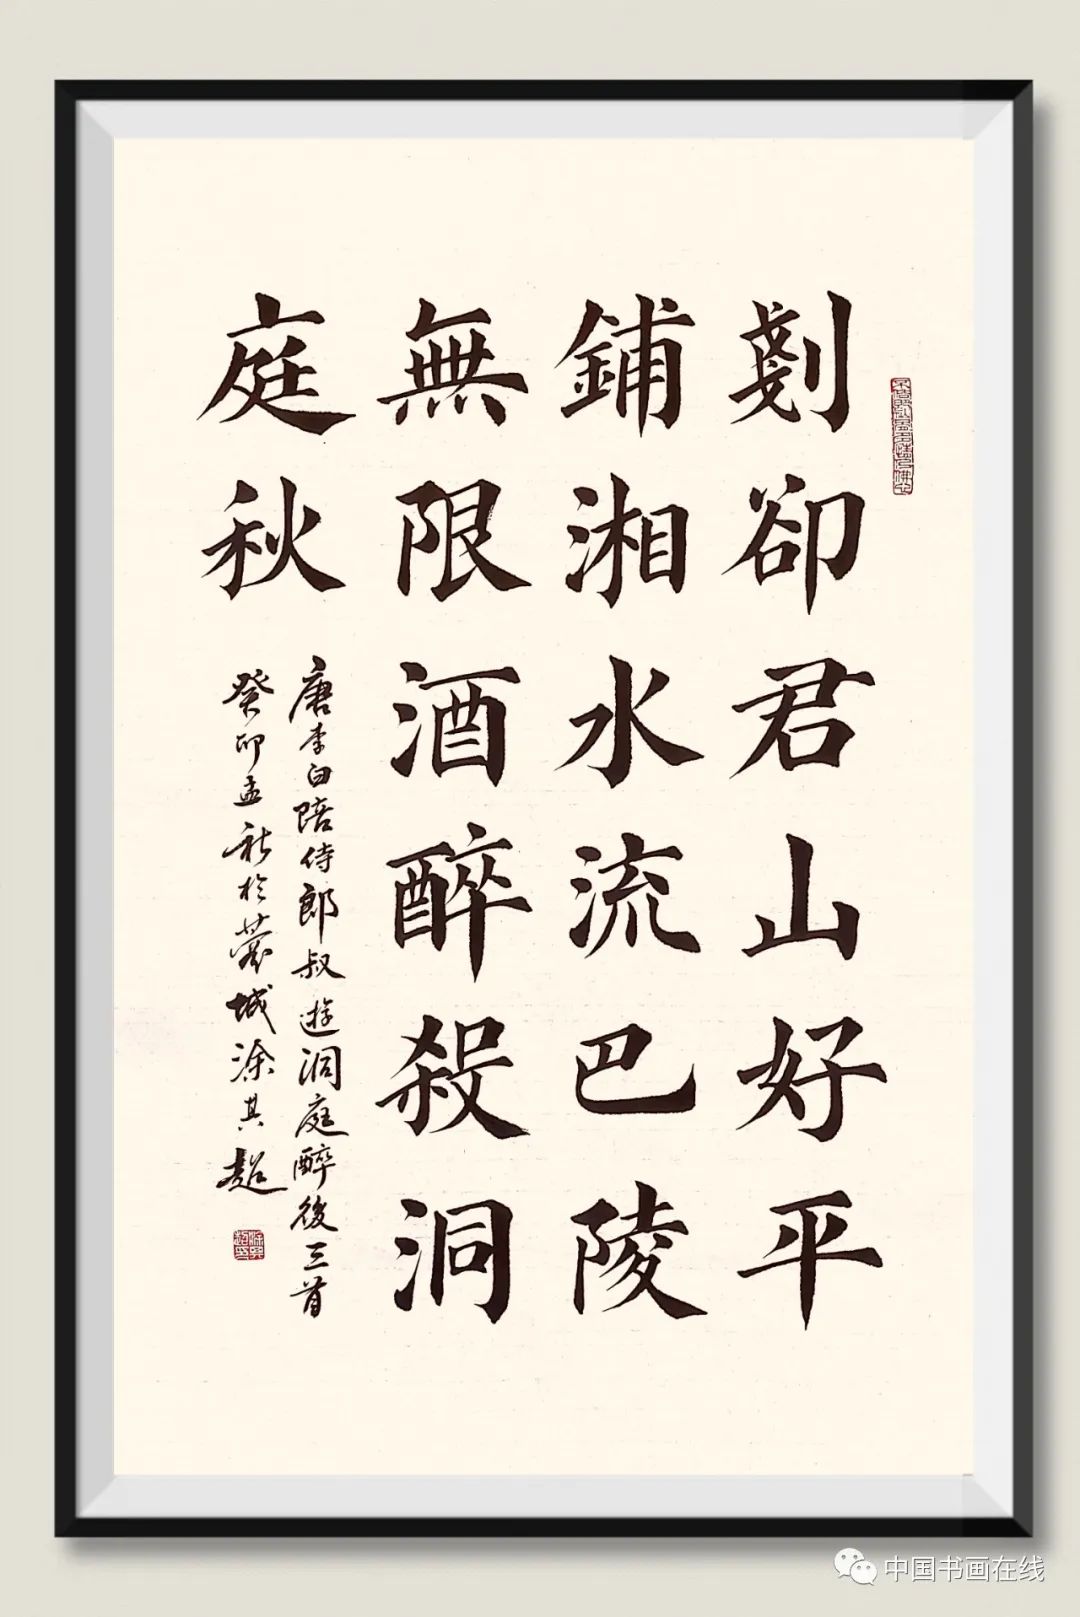 剗卻君山好平
鋪湘水流巴陵
無限酒醉殺洞
庭秋
唐李白陪侍郎叔遊洞庭醉後三首
癸卯孟秋於城涂其超
中国书画在线